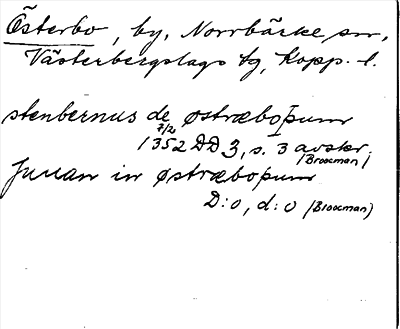 Österbo, by, Norrbärke sn,
Västerbergslags tg, Kopp. l.
stenbernus de østræboþum
7/2 1352 DD 3, s. 3 avskr.
(Brocman)
Juuan in østræboþum
D:o, d:o (Brocman)